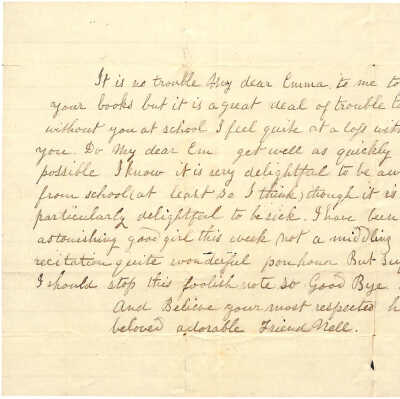 It is no trouble My dear Emma to me to
your books but it is a great deal of trouble to
without you at school I feel quite at a loss with
you. Do My dear Em get well as quickly
possible I know it is very delightful to be aw
from school (at least so I think) though it is
particularly delightful to be sick. I have been
astonishing good girl this week not a middling
recitation quite wonderful pon honor But Sup
I should stop this foolish note so Good Bye
And Believe your most respected h
beloved adorable Friend Nell.